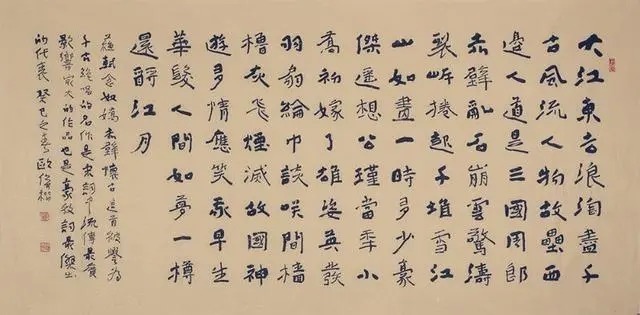 大江東去浪淘盡千
古風流人物故壘西
邊人道是三國周郎
赤壁亂石崩雲驚濤
裂岸捲起千堆雪江
山如畫一時多少豪
傑遙想公瑾當秊小
喬初嫁了雄姿英發
羽扇綸巾談咲間檣
櫓灰飛煙滅故國神
遊多情應笑我早生
華髮人間如夢一樽
還酹江月
蘇軾念奴嬌赤壁懷古這首被譽為
千古絕唱的名作是宋詞中流傳最廣
影響最大的作品也是豪放詞最傑出
的代表癸巳之春歐